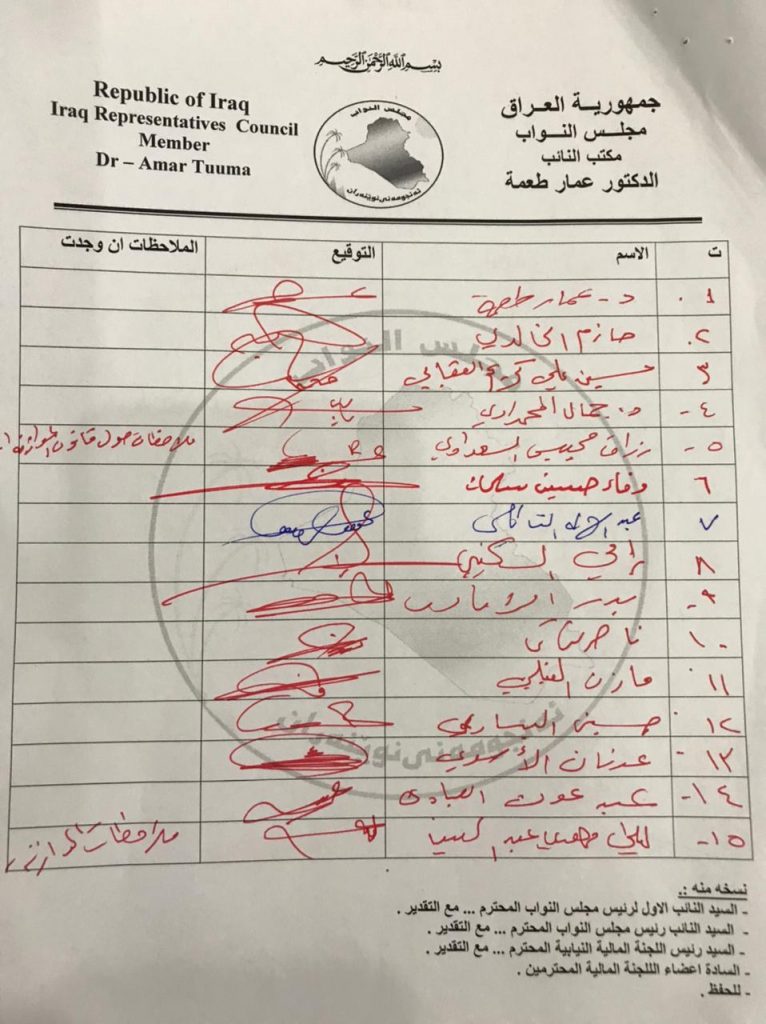 بسم الله الرحمن الرحيم
Republic of Iraq
Iraq Representatives Council
Member
Dr – Amar Tuuma
جمهورية العراق
مجلس النواب
مكتب النائب
الدكتور عمار طعمة
مجلس النواب
ئه نجومه نی نوێنه ران
ت الاسم التوقيع الملاحظات ان وجدت
١. د. عمار طعمة
٢. حازم الخالدي
٣ حسين علي كريم العقابي
٤- د. جمال المحمداوي
٥- رزاق محيبس السعداوي ملاحظات حول قانون الموازنة
٦ وفاء حسين سلمان
٧ عبد الاله النائلي
٨
٩-
١٠
١١ مازن الفيلي
١٢ حسين اليساري
١٣ عدنان الأسدي
١٤- عبد عون العبادي
١٥- ليلى مهدي عبد الحسين
مجلس النواب
ئه نجومه نی نوێنه ران
نسخه منه :.
- السيد النائب الاول لرئيس مجلس النواب المحترم ... مع التقدير .
- السيد نائب رئيس مجلس النواب المحترم ... مع التقدير .
- السيد رئيس اللجنة المالية النيابية المحترم ... مع التقدير .
- السادة اعضاء الللجنة المالية المحترمين .
- للحفظ .